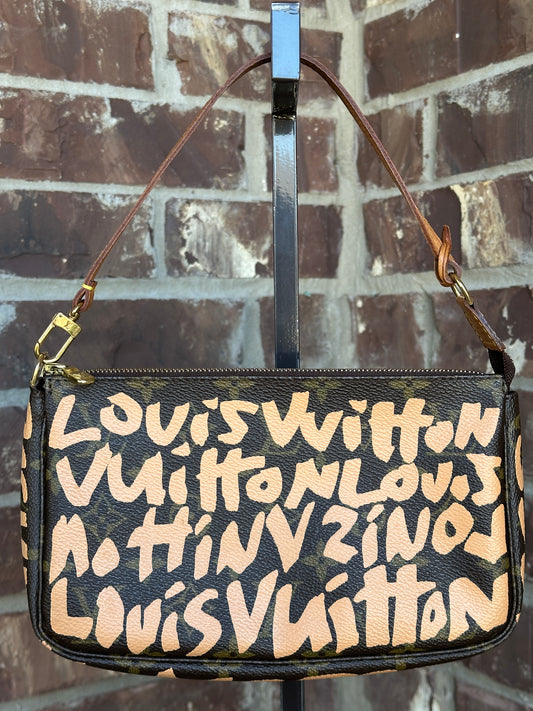 LOUiS VUittON
VUittON LOUiS
LOUiS VUittON
LOUiS VUittON